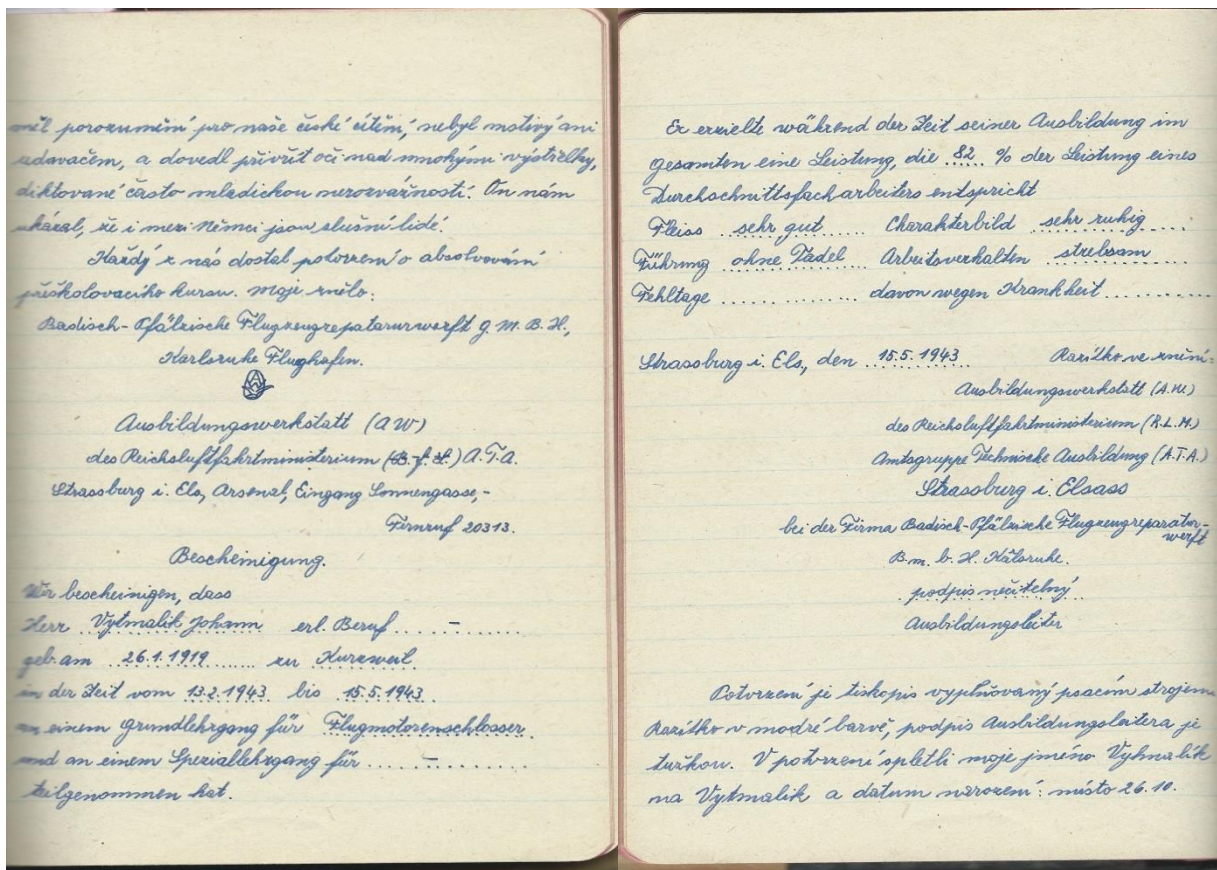 měl porozumění pro naše české cítění, nebyl mstivý ani
udavačem, a dovedl přivřít oči nad mnohými výstřelky,
diktované často mladickou nerozvážností. On nám
ukázal, že i mezi Němci jsou slušní lidé.
Každý z nás dostal potvrzení o absolvování
přeškolovacího kursu. Moje znělo:
Badisch-Pfälzische Flugzeugreparaturwerft G.M.B.H.,
Karlsruhe Flughafen.
Ausbildungswerkstatt (AW)
des Reichsluftfahrtministerium A.T.A.
Strassburg i. Els, Arsenal, Eingang Sonnengasse,-
Fernruf 20313.
Bescheinigung.
Wir bescheinigen, dass
Herr Vytmalik Johann erl. Beruf -
geb. am 26.1.1919 zu Kurzweil
in der Zeit vom 13.2.1943 bis 15.5.1943
an einem Grundlehrgang für Flugmotorenschlosser
und an einem Speziallehrgang für -
teilgenommen hat.
Er erzielte während der Zeit seiner Ausbildung im
Gesamten eine Leistung, die 82 % der Leistung eines
Durchschnittsfacharbeiters entspricht
Fleiss sehr gut Charakterbild sehr ruhig
Führung ohne Tadel Arbeitsverhalten strebsam
Fehltage davon wegen Krankheit
Strassburg i. Els, den 15.5.1943 Razítko ve znění:
Ausbildungswerkstatt (A.W.)
des Reichsluftfahrtministerium (R.L.M.)
Amtsgruppe Technische Ausbildung (A.T.A.)
Strassburg i. Elsass
bei der Firma Badisch-Pfälzische Flugzeugreparatur-
werft
B.m.b.H. Kalsruhe.
podpis nečitelný
Ausbildungsleiter
Potvrzení je tiskopis vyplňovaný psacím strojem
Razítko v modré barvě, podpis Ausbildungsleitera je
tužkou. V potvrzení spletli moje jméno Vyhnalík
na Vytmalik a datum narození: místo 26.10.